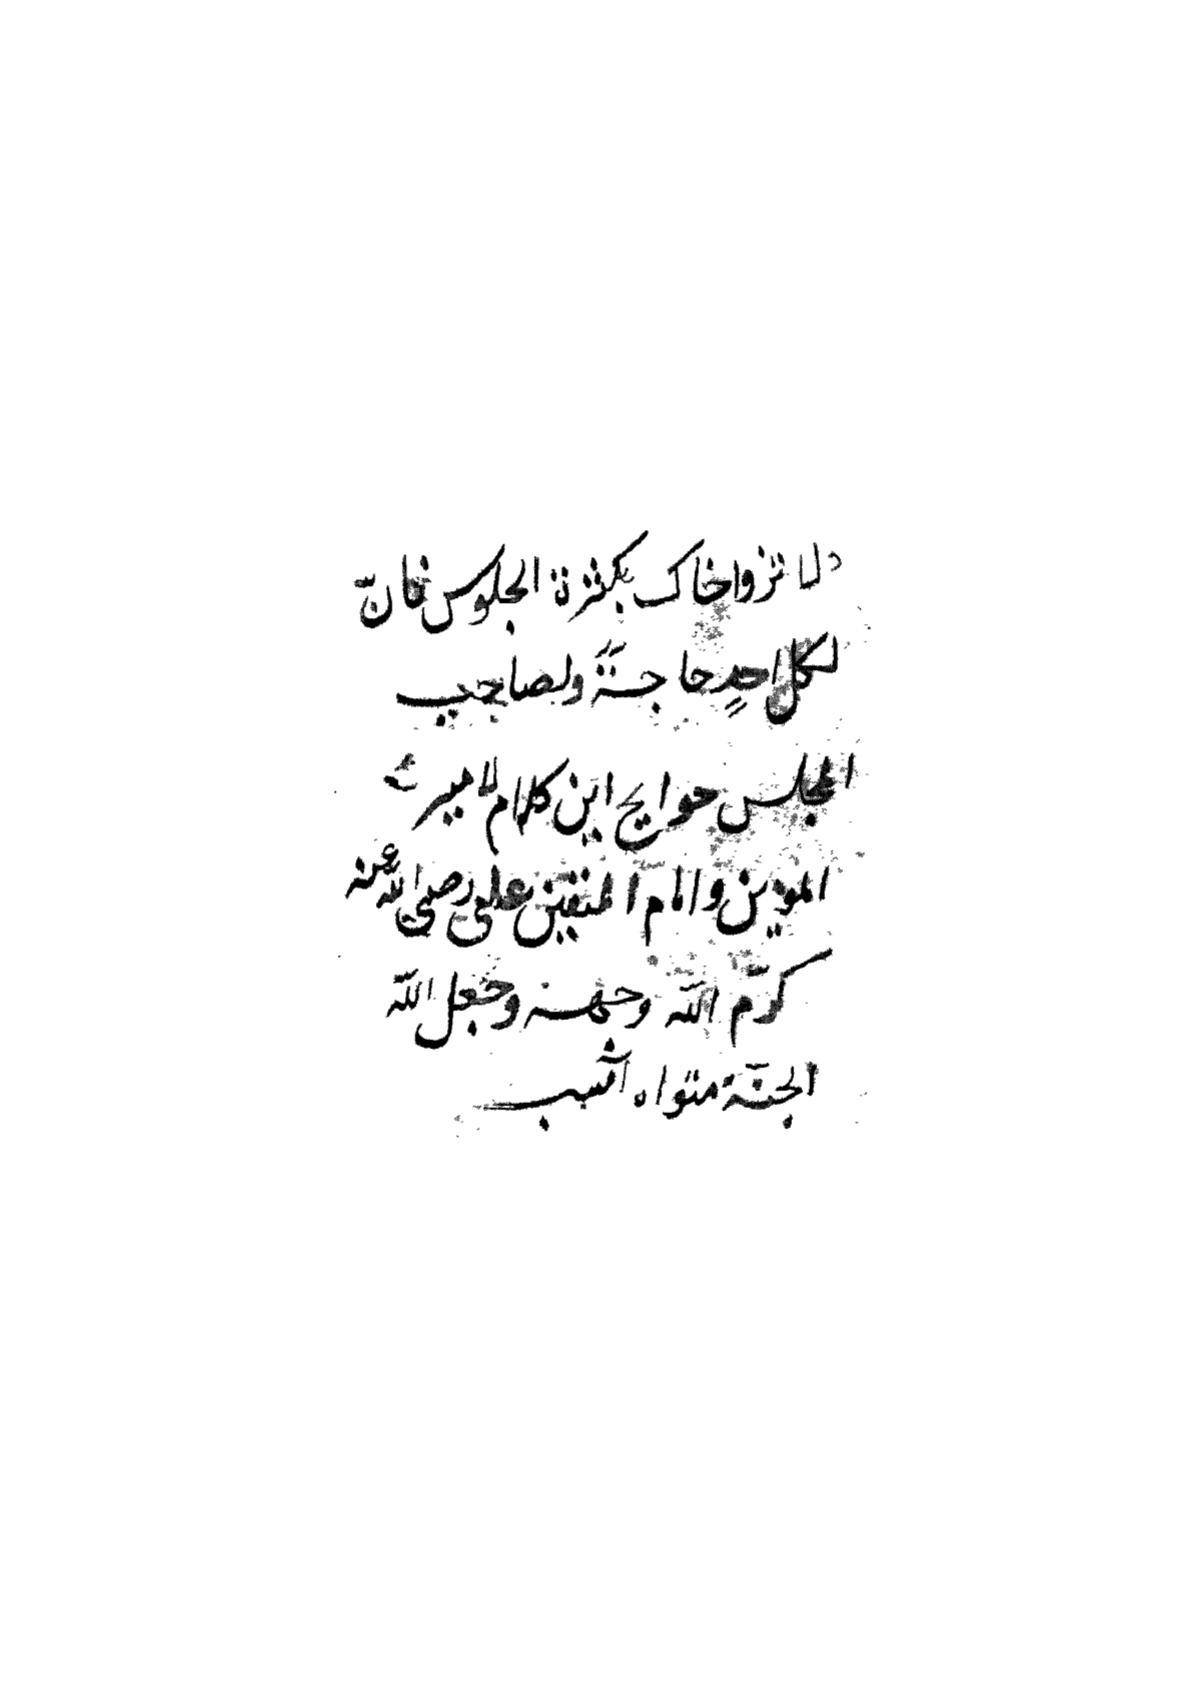 لا تزواخاک بکثرة الجلوس فانّ
لکل احدٍ حاجةً ولصاحب
المجلس حوایج این کلام لامیر
المومین وامام المتقین علی رضی الله عنه
کرّم الله وجهه وجعل الله
الجنّة مثواه